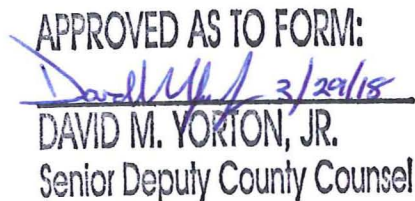 APPROVED AS TO FORM:
3/29/18
DAVID M. YORTON, JR.
Senior Deputy County Counsel